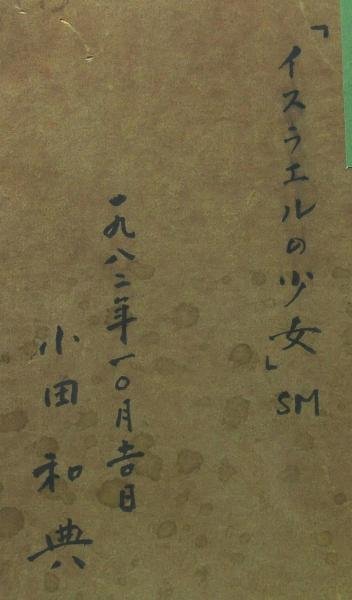 「イスラエルの少女」SM
一九八二年一〇月吉日
小田和典